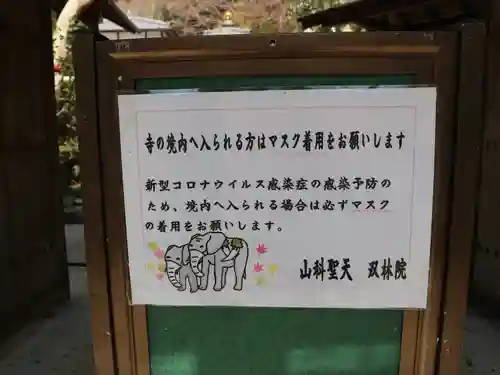 寺の境内へ入られる方はマスク着用をお願いします
新型コロナウイルス感染症の感染予防の
ため、境内へ入られる場合は必ずマスク
の着用をお願いします。
山科聖天　双林院